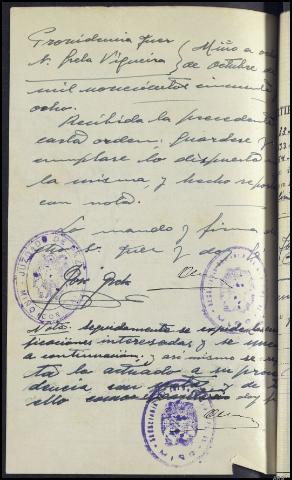 Providencia Juez
Sr. Grela Vigueira
Miño a ocho
de Octubre de
mil novecientos cincuenta
ocho.
Recibida la precedente
carta orden; guardese y
cumplase lo dispuesto en
la misma, y hecho
con nota.
Lo mando y firma
Sr. Juez y doy fe
JUZGADO DE PAZ
MIÑO
Nota: Seguidamente se expiden
ficaciones interesadas y se unen
a continuación; y así mismo se
ta lo actuado a su pro
dencia con
ello doy fe
SECRETARIA
MIÑO